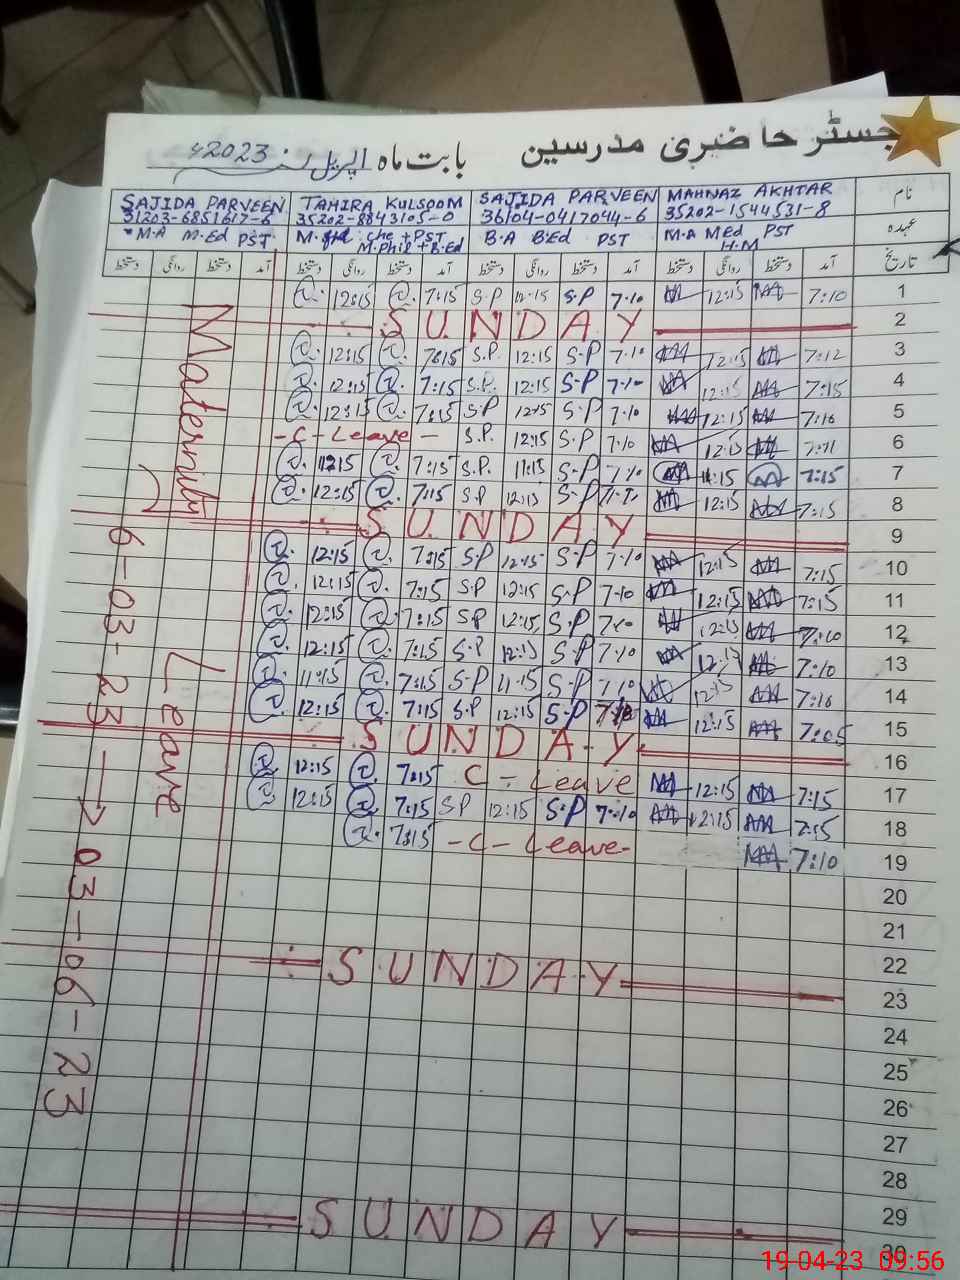 رجسٹر حاضری مدرسین بابت ماہ اپریل سنہ 2023ء
نام MAHNAZ AKHTAR SAJIDA PARVEEN TAHIRA KULSOOM SAJIDA PARVEEN
35202-1544531-8 36104-0417044-6 35202-8843105-0 31203-6851617-6
عہدہ M.A MEd PST B.A B.Ed PST M. che + PST M.A M.Ed PST
H.M M.Phil + B.Ed
تاریخ آمد دستخط روانگی دستخط آمد دستخط روانگی دستخط آمد دستخط روانگی دستخط آمد دستخط روانگی دستخط
1 7:10 12:15 7:10 S.P 12:15 S.P 7:15 12:15
2 SUNDAY
3 7:12 12:15 7:10 S.P 12:15 S.P. 7:15 12:15
4 7:15 12:15 7:10 S.P 12:15 S.P. 7:15 12:15
5 7:10 12:15 7:10 S.P 12:15 S.P 7:15 12:15
6 7:11 12:15 7:10 S.P 12:15 S.P. -C-Leave-
7 7:15 11:15 7:10 S.P 11:15 S.P. 7:15 12:15
8 7:15 12:15 S.P 12:15 S.P 7:15 12:15
9 SUNDAY
10 7:15 12:15 7:10 S.P 12:15 S.P 7:15 12:15
11 7:15 12:15 7:10 S.P 12:15 S.P 7:15 12:15
12 7:10 12:15 7:10 S.P 12:15 S.P 7:15 12:15
13 7:10 12:15 7:10 S.P 12:15 S.P 7:15 12:15
14 7:10 12:15 7:10 S.P 11:15 S.P 7:15 11:15
15 7:05 12:15 S.P 12:15 S.P 7:15 12:15
16 SUNDAY
17 7:15 12:15 C-Leave 7:15 12:15
18 7:15 12:15 7:10 S.P 12:15 S.P 7:15 12:15
19 7:10 -C-Leave- 7:15
20
21
22
23 SUNDAY
24
25
26
27
28
29
30 SUNDAY
Maternity Leave
6-03-23 → 03-06-23
19-04-23 09:56